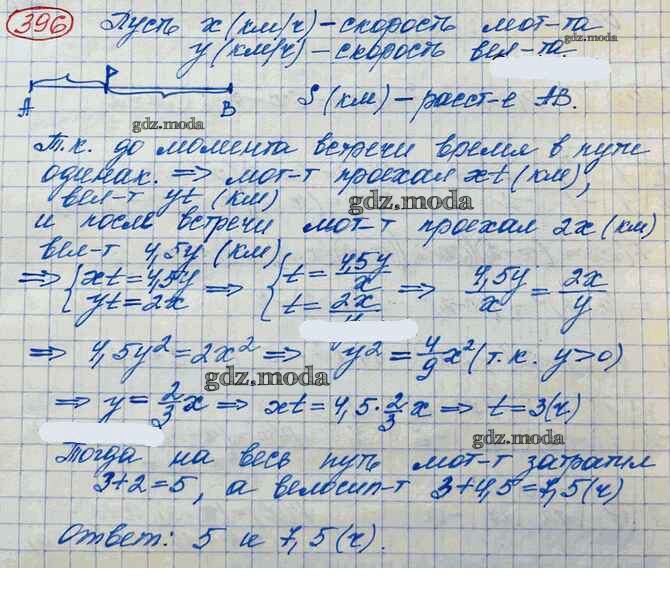 396 Пусть x (км/ч) – скорость мот-та
y (км/ч) – скорость вел-та.
P
A B S (км) – расст-е AB.
gdz.moda
Т.к. до момента встречи время в пути
одинак. ⇒ мот-т проехал xt (км),
вел-т yt (км)
gdz.moda
и после встречи мот-т проехал 2x (км)
вел-т 4,5y (км)
⇒ { xt = 4,5y ⇒ { t = 4,5y/x ⇒ 4,5y/x = 2x/y
yt = 2x t = 2x
⇒ 4,5y² = 2x² ⇒ y² = 4/9 x² (т.к. y > 0)
gdz.moda
⇒ y = 2/3 x ⇒ xt = 4,5 · 2/3 x ⇒ t = 3 (ч)
gdz.moda
Тогда на весь путь мот-т затратил
3+2=5, а велосип-т 3+4,5=7,5 (ч)
Ответ: 5 и 7,5 (ч).
gdz.moda